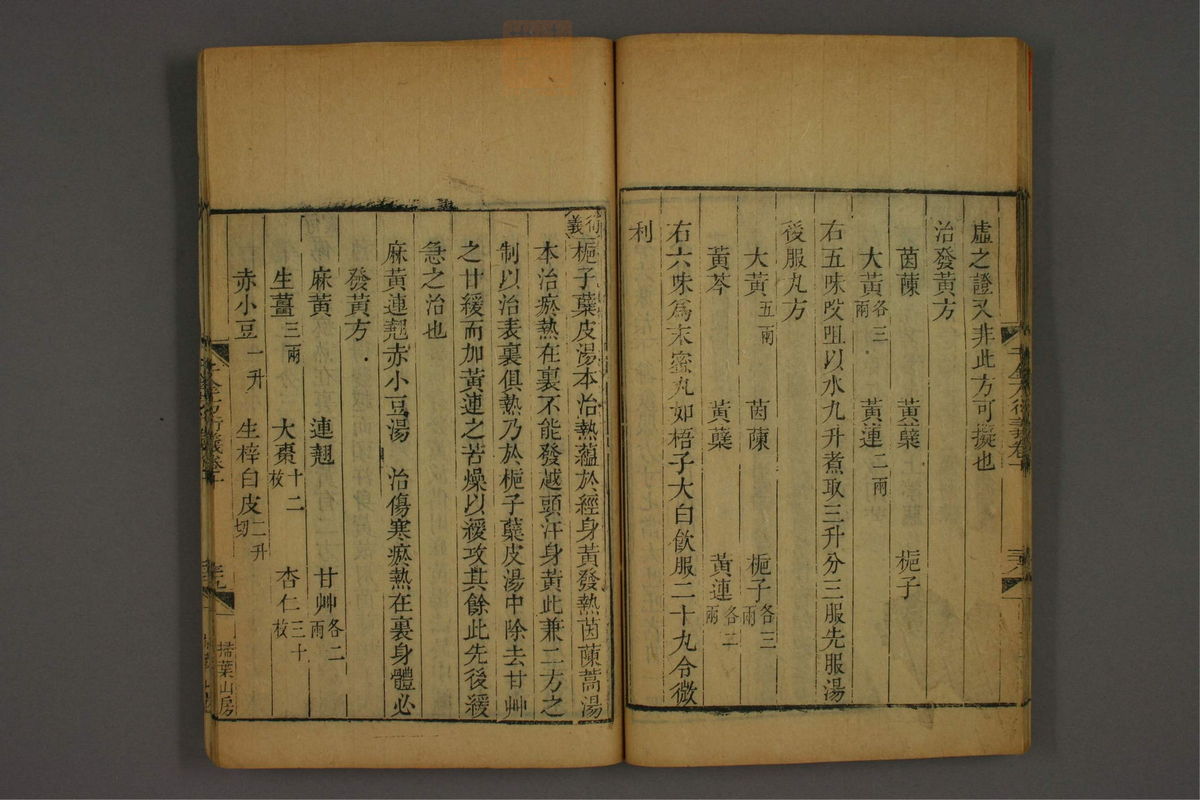 虛之證又非此方可擬也
治發黃方
茵蔯 黃蘗 梔子
大黃各三兩 黃連二兩
右五味㕮咀以水九升煮取三升分三服先服湯
後服丸方
大黃五兩 茵蔯 梔子各三兩
黃芩 黃蘗 黃連各二兩
右六味爲末蜜丸如梧子大白飲服二十丸令微
利
衍義梔子蘗皮湯本治熱蘊於經身黃發熱茵蔯蒿湯
本治瘀熱在裏不能發越頭汗身黃此兼二方之
制以治表裏俱熱乃於梔子蘗皮湯中除去甘艸
之甘緩而加黃連之苦燥以緩攻其餘此先後緩
急之治也
麻黃連翹赤小豆湯 治傷寒瘀熱在裏身體必
發黃方
麻黃 連翹 甘艸各二兩
生薑三兩 大棗十二枚 杏仁三十枚
赤小豆一升 生梓白皮切二升
千金方衍義卷十
掃葉山房